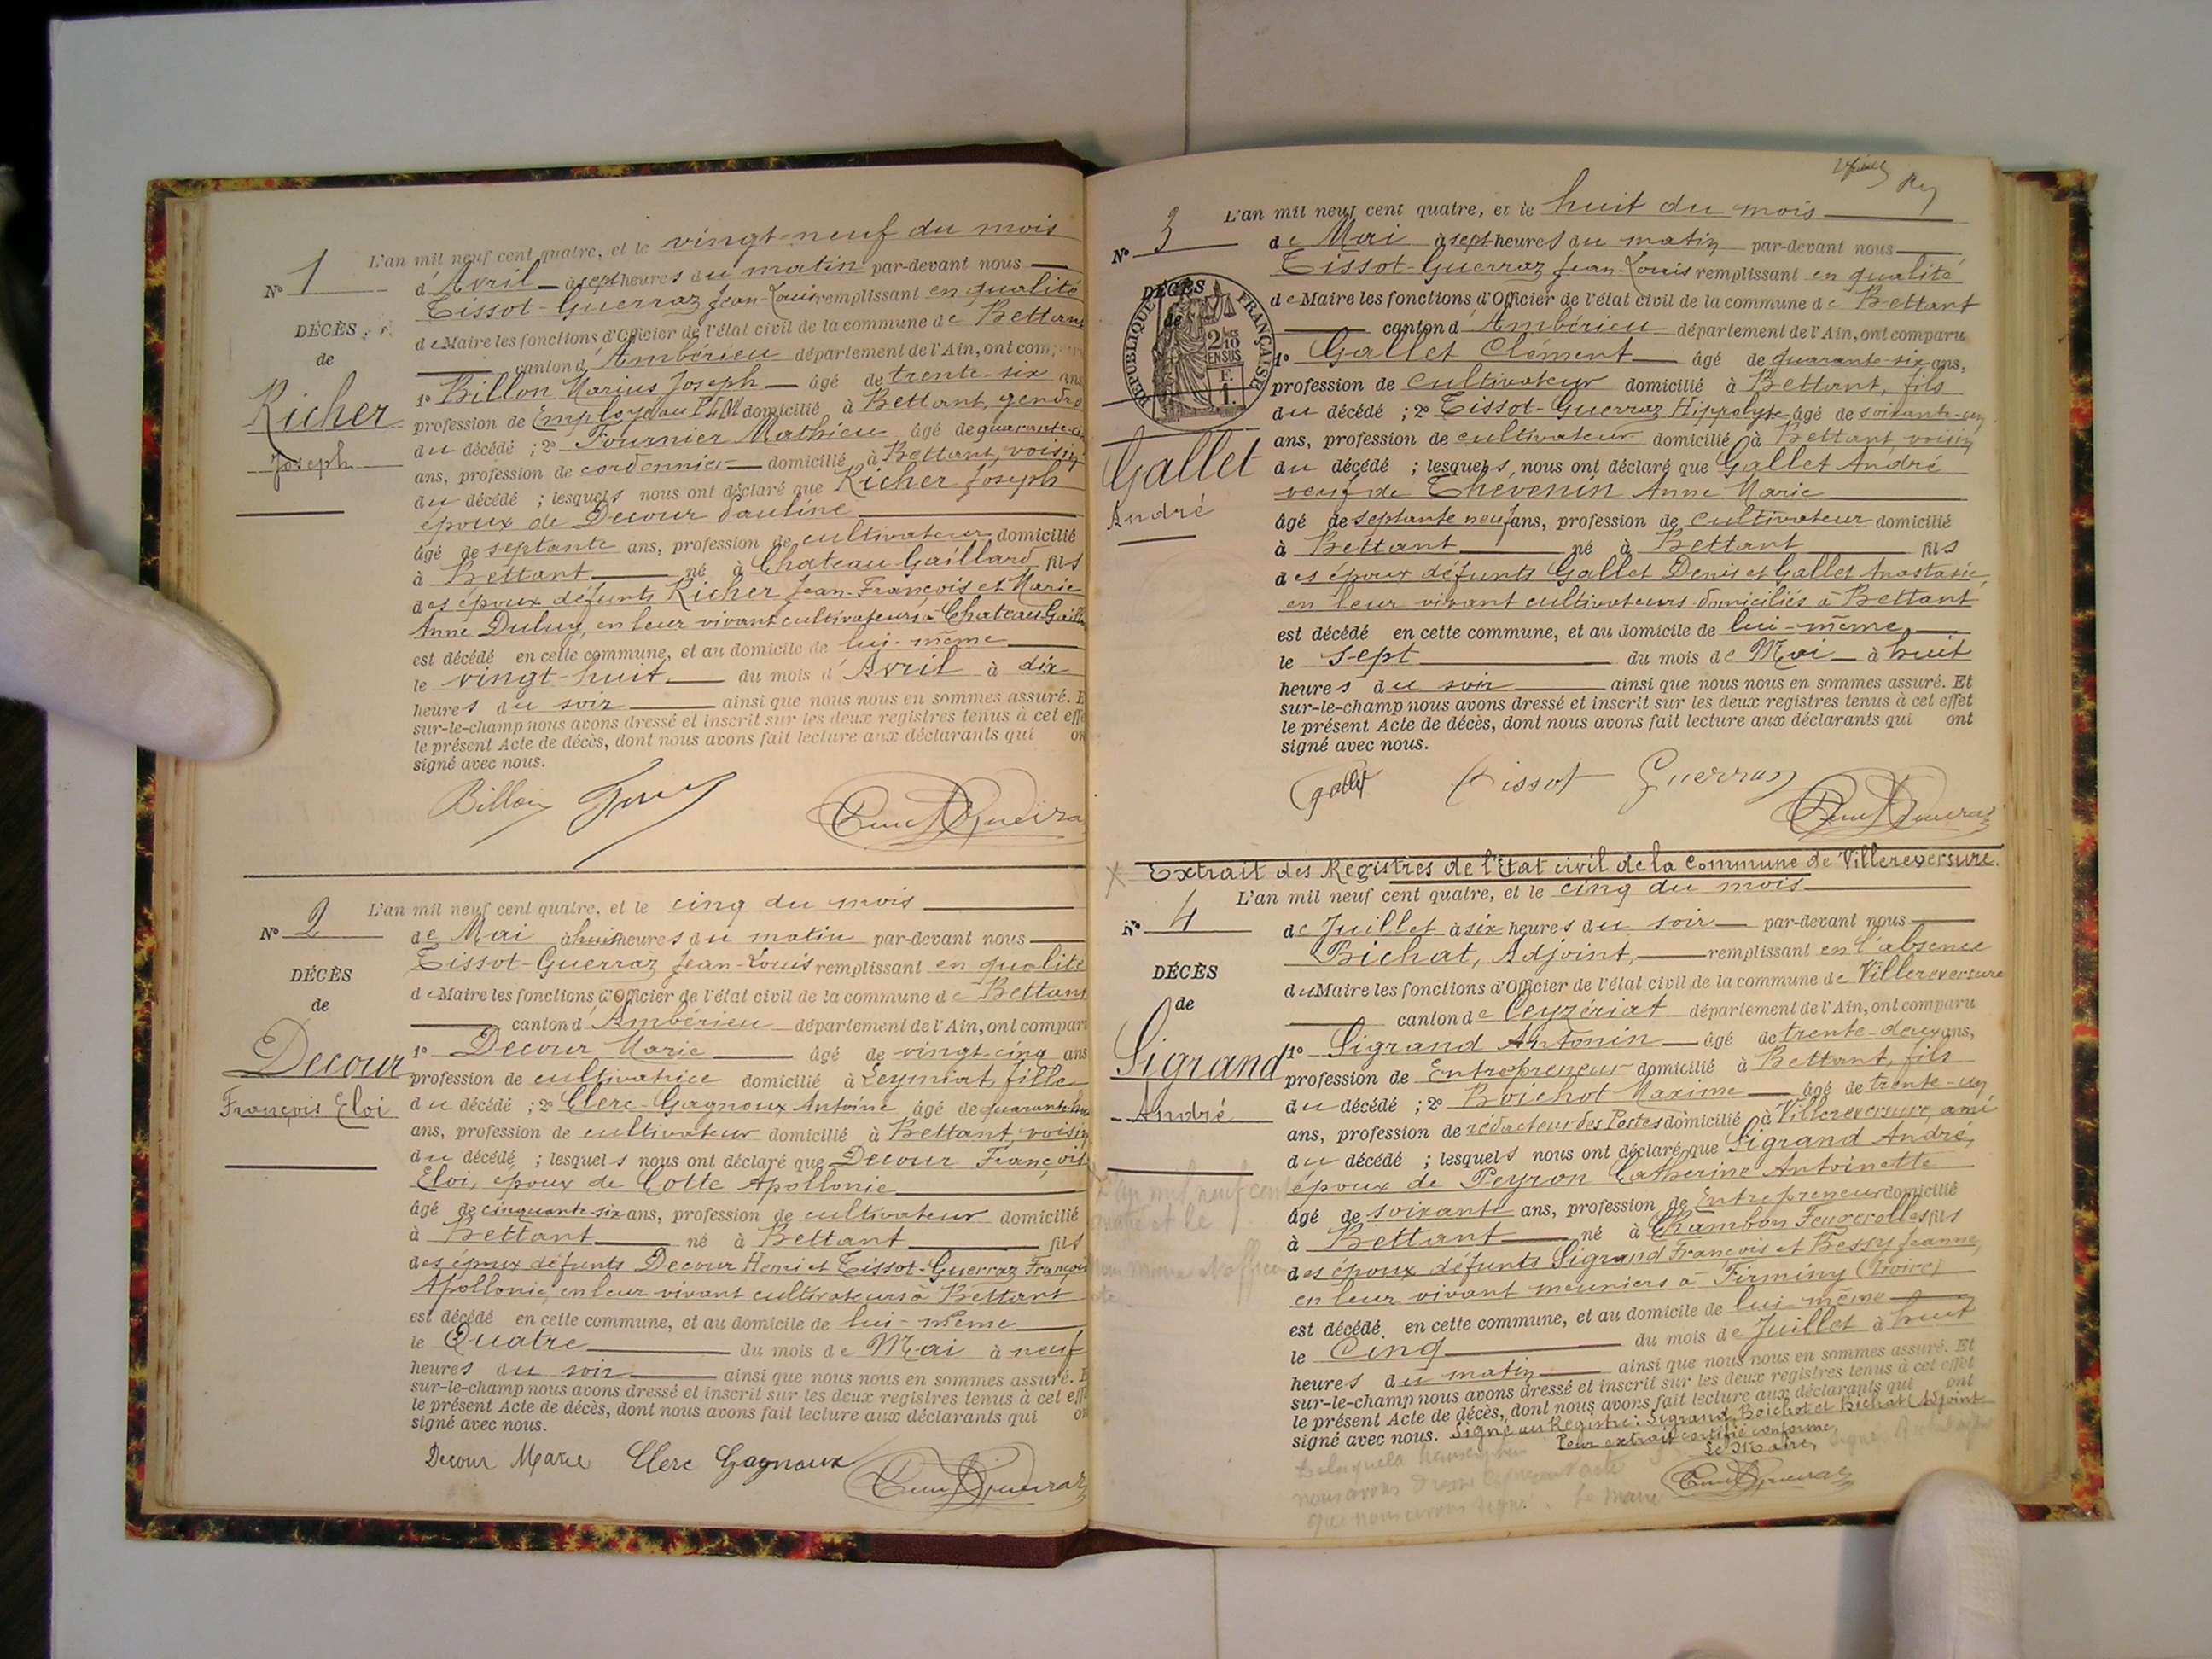 L'an mil neuf cent quatre, et le vingt-neuf du mois
N° 1
d'Avril à sept heures du matin par-devant nous
Tissot-Guerraz Jean-Louis remplissant en qualité
DÉCÈS
de Maire les fonctions d'Officier de l'état civil de la commune de Bettant
de
canton d'Ambérieu département de l'Ain, ont comparu
Richer
1° Billon Marius Joseph âgé de trente-six ans
profession de Employé au PLM domicilié à Bettant, gendre
Joseph
du décédé ; 2° Fournier Mathieu âgé de
ans, profession de cordonnier domicilié à Bettant, voisin
du décédé ; lesquels nous ont déclaré que Richer Joseph
époux de Decour Pauline
âgé de septante ans, profession de cultivateur domicilié
à Bettant né à Chateau-Gaillard fils
des époux défunts Richer Jean-François et Marie
Anne Duluy, en leur vivant cultivateurs à Chateau Gaill
est décédé en cette commune, et au domicile de lui-même
le vingt-huit du mois d'Avril à dix
heures du soir ainsi que nous nous en sommes assuré. E
sur-le-champ nous avons dressé et inscrit sur les deux registres tenus à cet effe
le présent Acte de décès, dont nous avons fait lecture aux déclarants qui on
signé avec nous.
Billon
L'an mil neuf cent quatre, et le cinq du mois
N° 2
de Mai à huit heures du matin par-devant nous
Tissot-Guerraz Jean-Louis remplissant en qualité
DÉCÈS
de Maire les fonctions d'Officier de l'état civil de la commune de Bettant
de
canton d'Ambérieu département de l'Ain, ont compar
Decour
1° Decour Marie âgé de vingt-cinq ans
profession de cultivatrice domicilié à Leymiat, fille
François Eloi
du décédé ; 2° Clerc-Gagnoux Antoine âgé de
ans, profession de cultivateur domicilié à Bettant, voisin
du décédé ; lesquels nous ont déclaré que Decour François
Eloi, époux de Cotte Apollonie
âgé de cinquante-six ans, profession de cultivateur domicilié
à Bettant né à Bettant fils
des époux défunts Decour Henri et Tissot-Guerraz François
Apollonie, en leur vivant cultivateurs à Bettant
est décédé en cette commune, et au domicile de lui-même
le Quatre du mois de Mai à neuf
heures du soir ainsi que nous nous en sommes assuré. E
sur-le-champ nous avons dressé et inscrit sur les deux registres tenus à cet eff
le présent Acte de décès, dont nous avons fait lecture aux déclarants qui on
signé avec nous.
Decour Marie Clerc Gagnoux
L'an mil neuf cent quatre, et le huit du mois
N° 3
de Mai à sept heures du matin par-devant nous
Tissot-Guerraz Jean-Louis remplissant en qualité
DÉCÈS
de Maire les fonctions d'Officier de l'état civil de la commune de Bettant
de
RÉPUBLIQUE FRANÇAISE
2/10 EN SUS
canton d'Ambérieu département de l'Ain, ont comparu
1° Gallet Clément âgé de quarante-six ans,
profession de cultivateur domicilié à Bettant, fils
du décédé ; 2° Tissot-Guerraz Hippolyte âgé de soixante-un
ans, profession de cultivateur domicilié à Bettant, voisin
Gallet
du décédé ; lesquels nous ont déclaré que Gallet André
veuf de Thevenin Anne Marie
André
âgé de septante neuf ans, profession de cultivateur domicilié
à Bettant né à Bettant fils
des époux défunts Gallet Denis et Gallet Anastasie,
en leur vivant cultivateurs domiciliés à Bettant
est décédé en cette commune, et au domicile de lui-même
le sept du mois de Mai à huit
heures du soir ainsi que nous nous en sommes assuré. Et
sur-le-champ nous avons dressé et inscrit sur les deux registres tenus à cet effet
le présent Acte de décès, dont nous avons fait lecture aux déclarants qui ont
signé avec nous.
Gallet Tissot Guerraz
Extrait des Registres de l'Etat civil de la Commune de Villereversure.
L'an mil neuf cent quatre, et le cinq du mois
N° 4
de Juillet à six heures du soir par-devant nous
Bichat, Adjoint, remplissant en l'absence
DÉCÈS
du Maire les fonctions d'Officier de l'état civil de la commune de Villereversure
de
canton de Ceyzériat département de l'Ain, ont comparu
Sigrand
1° Sigrand Antonin âgé de trente-deux ans,
profession de Entrepreneur domicilié à Bettant, fils
André
du décédé ; 2° Boichot Maxime âgé de trente-un
ans, profession de rédacteur des Postes domicilié à Villereversure, ami
du décédé ; lesquels nous ont déclaré que Sigrand André,
époux de Peyron Catherine Antoinette
âgé de soixante ans, profession de Entrepreneur domicilié
à Bettant né à Chambon Feugerolles fils
des époux défunts Sigrand François et Bessy Jeanne,
en leur vivant meuniers à Firminy (Loire)
est décédé en cette commune, et au domicile de lui-même
le Cinq du mois de Juillet à huit
heures du matin ainsi que nous nous en sommes assuré. Et
sur-le-champ nous avons dressé et inscrit sur les deux registres tenus à cet effet
le présent Acte de décès, dont nous avons fait lecture aux déclarants qui ont
signé avec nous. Signé au Registre: Sigrand, Boichot et Bichat Adjoint
Pour extrait certifié conforme,
Le Maire,
nous avons
que nous avons signé. Le Maire